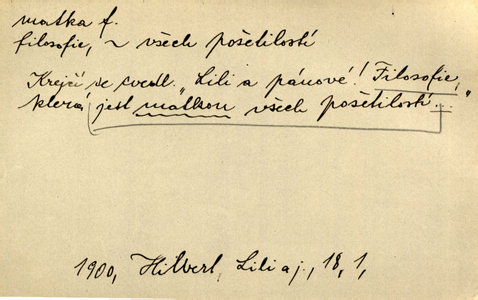 matka f.
filosofie, ~ všech pošetilostí
Krejčí se uvedl. „Lili a pánové! Filosofie,
která jest matkou všech pošetilostí..."
1900, Hilbert, Lili a j., 18, 1,